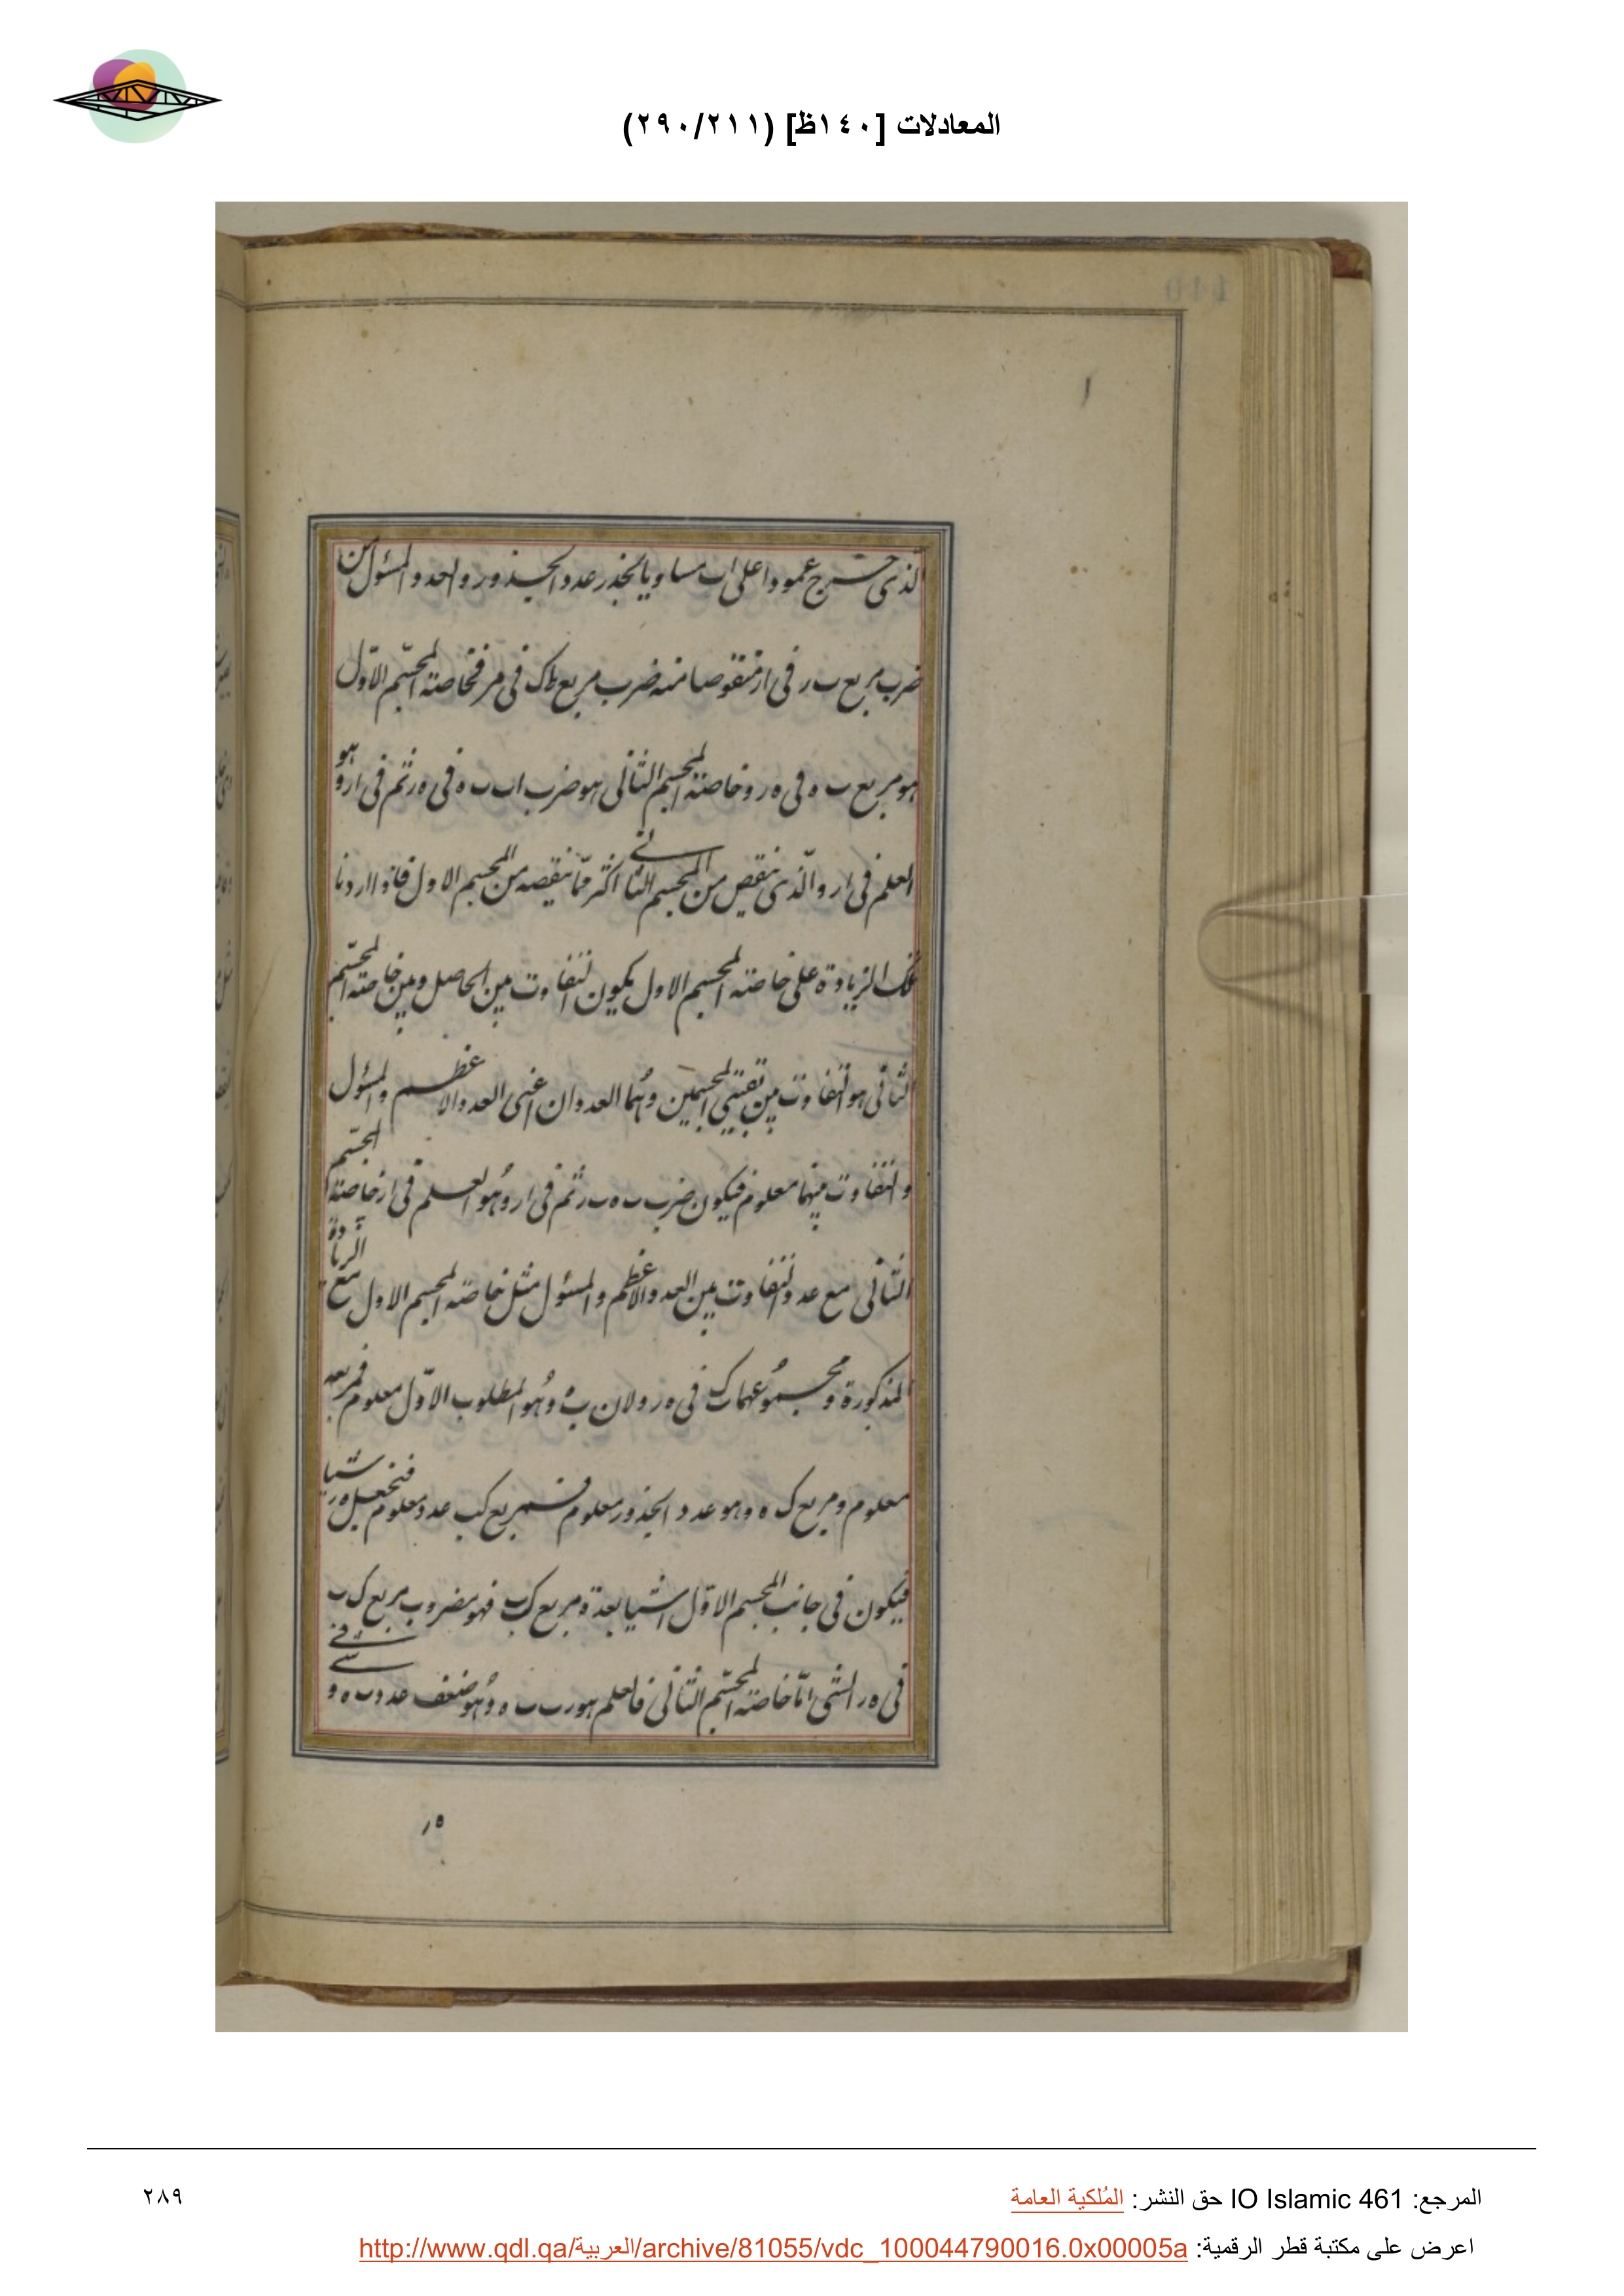 المعادلات [١٤٠ظ] (٢٩٠/٢١١)
الذى خرج عمودا على اب مساويا لجذر عدد الجذور والعدد المسئول من
ضرب مربع ب ر فى ار منقوصا منه ضرب مربع ك فى مر فخاصته المجسم الاول
هو مربع ب ه فى ه ر وخاصته المجسم الثانى هو ضرب اب ب ه فى ه ر ثم فى ار و هو
العلم فى ار والذى ينقص من المجسم الثانى اكثر مما ينقصه من المجسم الاول فاذا اردنا
تلك الزيادة على خاصته المجسم الاول يكون التفاوت بين الحاصل وبين خاصته المجسم
الثانى هو التفاوت بين بقيتى المجسمين وهما العددان اعنى العدد الاعظم والمسئول
والتفاوت بينهما معلوم فيكون ضرب ب ه ب ر ثم فى ار وهو العلم فى ار خاصته المجسم
الثانى مع عدد التفاوت بين العدد الاعظم والمسئول مثل خاصته المجسم الاول مع الزيادة
المذكورة ومجموعهما فى ه ر ولان ب ه وهو المطلوب الاول معلوم فمربعه
معلوم ومربع ك ه وهو عدد الجذور معلوم فمربع كب عدد معلوم فنجعل ه ر شيا
فيكون فى جانب المجسم الاول اشيا بعدة مربع ك ب فهو مضروب مربع ك ب
فى ه ر الشى اما خاصته المجسم الثانى فالعلم هو ر ب ب ه وهو ضعف عدد ب ه و شى فى
ه ر
المرجع: IO Islamic 461 حق النشر: المُلكية العامة
٢٨٩
اعرض على مكتبة قطر الرقمية: http://www.qdl.qa/العربية/archive/81055/vdc_100044790016.0x00005a